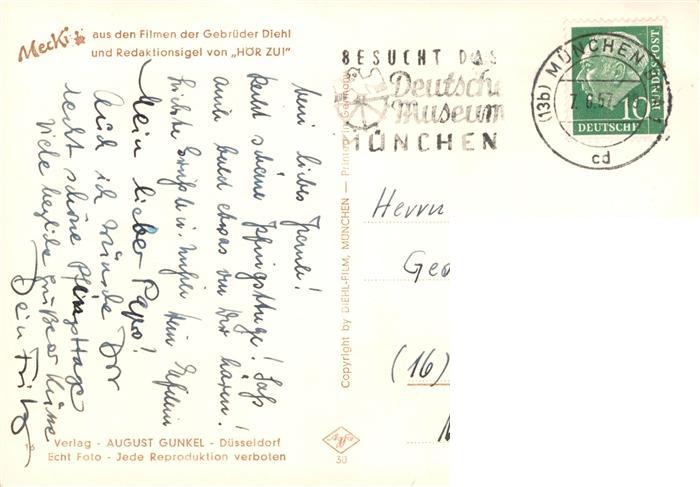 Mecki aus den Filmen der Gebrüder Diehl
und Redaktionsigel von „HÖR ZU!"
BESUCHT DAS
Deutsche
Museum
MÜNCHEN
(13b) MÜNCHEN
7. 6. 57
cd
10
DEUTSCHE
BUNDESPOST
Mein liebes
Recht schöne Pfingsttage! Laß
auch bald etwas von Dir hören!
Mein lieber Papo!
Auch ich wünsche Dir
recht schöne Pfingsttage
Viele herzliche Grüße
Dein Fritz
Copyright by DIEHL-FILM, MÜNCHEN — Printed in Germany
Herrn
Geo
(16)
Agfa
30
16 Verlag - AUGUST GUNKEL - Düsseldorf
Echt Foto - Jede Reproduktion verboten